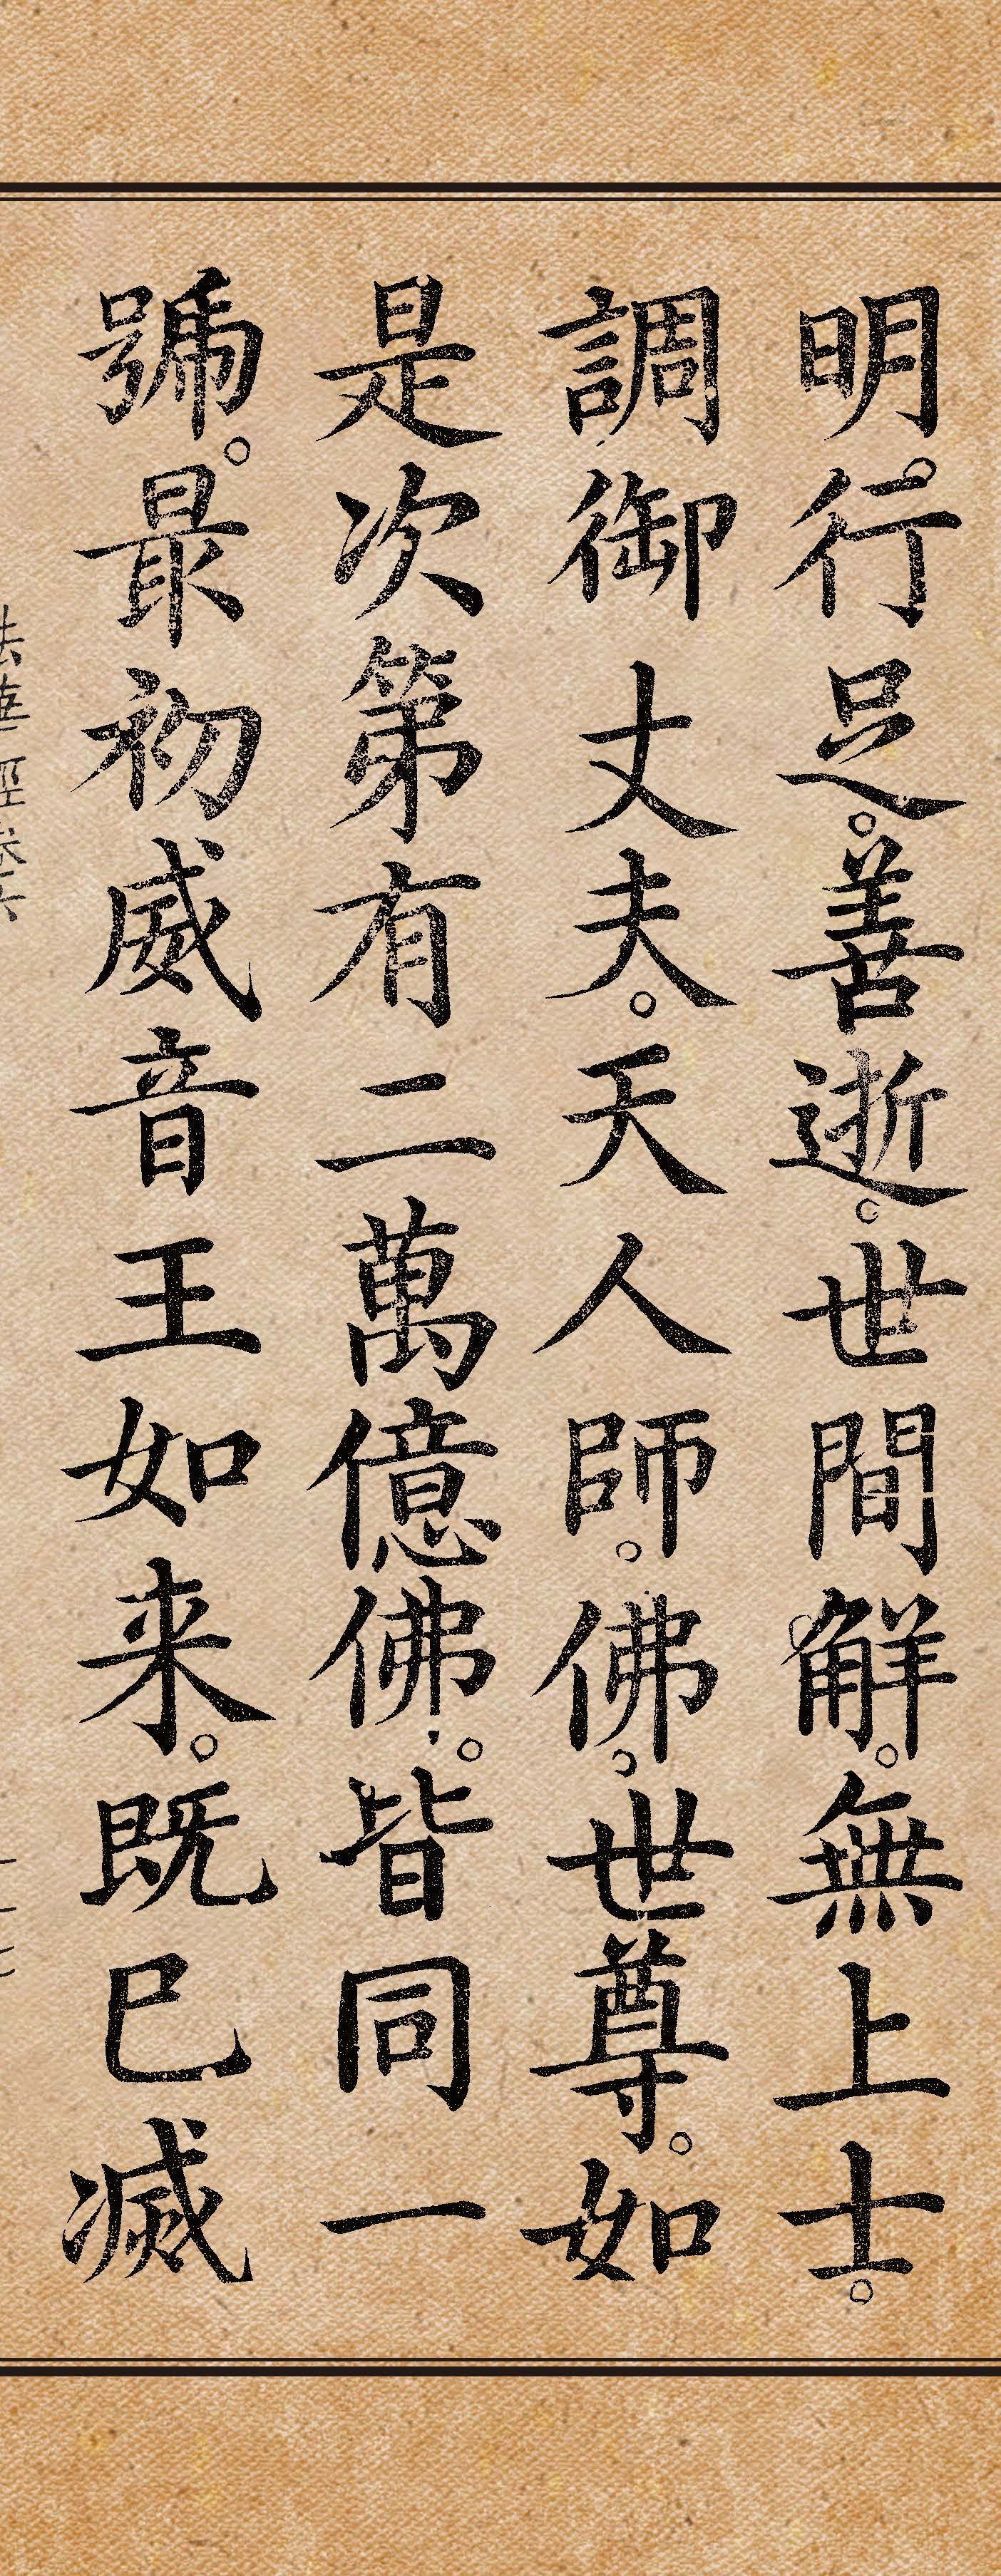 明。行足。善逝。世間解。無上士。
調御丈夫。天人師。佛。世尊。如
是次第有二萬億佛。皆同一
號。最初威音王如来。既已滅